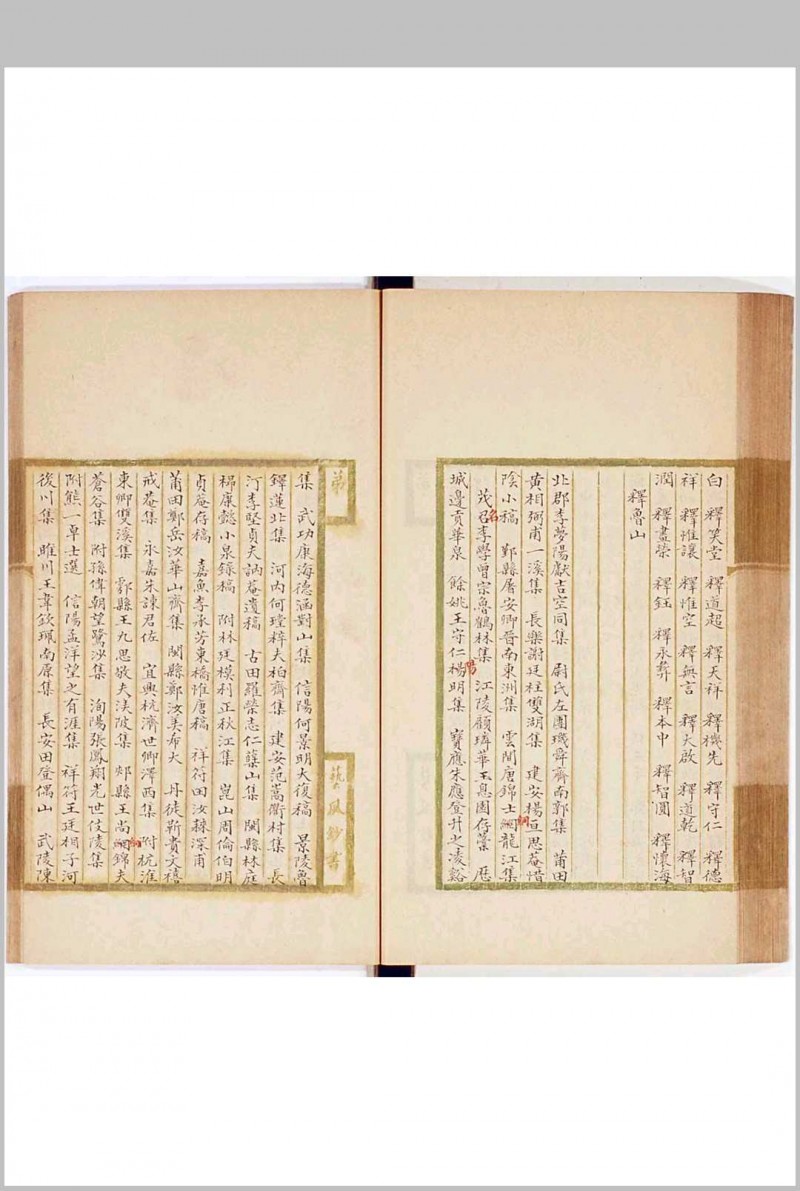 白 釋笑堂 釋道超 釋天祥 釋機先 釋守仁 釋德
祥 釋惟讓 釋惟空 釋無言 釋大啟 釋道乾 釋智
潤 釋盡榮 釋鈺 釋永彝 釋本中 釋智圓 釋懷海
釋魯山
北郡李夢陽獻吉空同集 尉氏左國璣舜齊南郭集 莆田
黃相弼甫一溪集 長樂謝廷柱雙湖集 建安楊亘思菴惜
陰小稿 鄞縣屠安卿晉南東洲集 雲間唐錦士綱龍江集
茂名李學曾宗魯鶴林集 江陵顧璘華玉息園存藁 歷
城邊貢華泉 餘姚王守仁陽明集 寶應朱應登升之凌谿
集 武功康海德涵對山集 信陽何景明大復稿 景陵魯
鐸蓮北集 河內何瑭粹夫柏齋集 建安范嵩衢村集 長
汀李堅貞夫訥菴遺稿 古田羅榮志仁蘖山集 閩縣林庭
㭿康懿小泉錄稿 附林廷模利正秋江集 崑山周倫伯明
貞菴存稿 嘉魚李承芳東橋惟唐稿 祥符田汝耔深甫
莆田鄭岳汝華山齋集 閩縣鄭汝美希大 丹徒靳貴文禧
戒菴集 永嘉朱諫君佐 宜興杭濟世卿澤西集 附杭淮
東卿雙溪集 鄠縣王九思敬夫渼陂集 郟縣王尚絅錦夫
蒼谷集 附孫偉朝望鷺沙集 洵陽張鳳翔光世伎陵集
附熊一卓士選 信陽孟洋望之有涯集 祥符王廷相子河
後川集 雎川王韋欽珮南原集 長安田登偶山 武陵陳
第
藝風鈔書